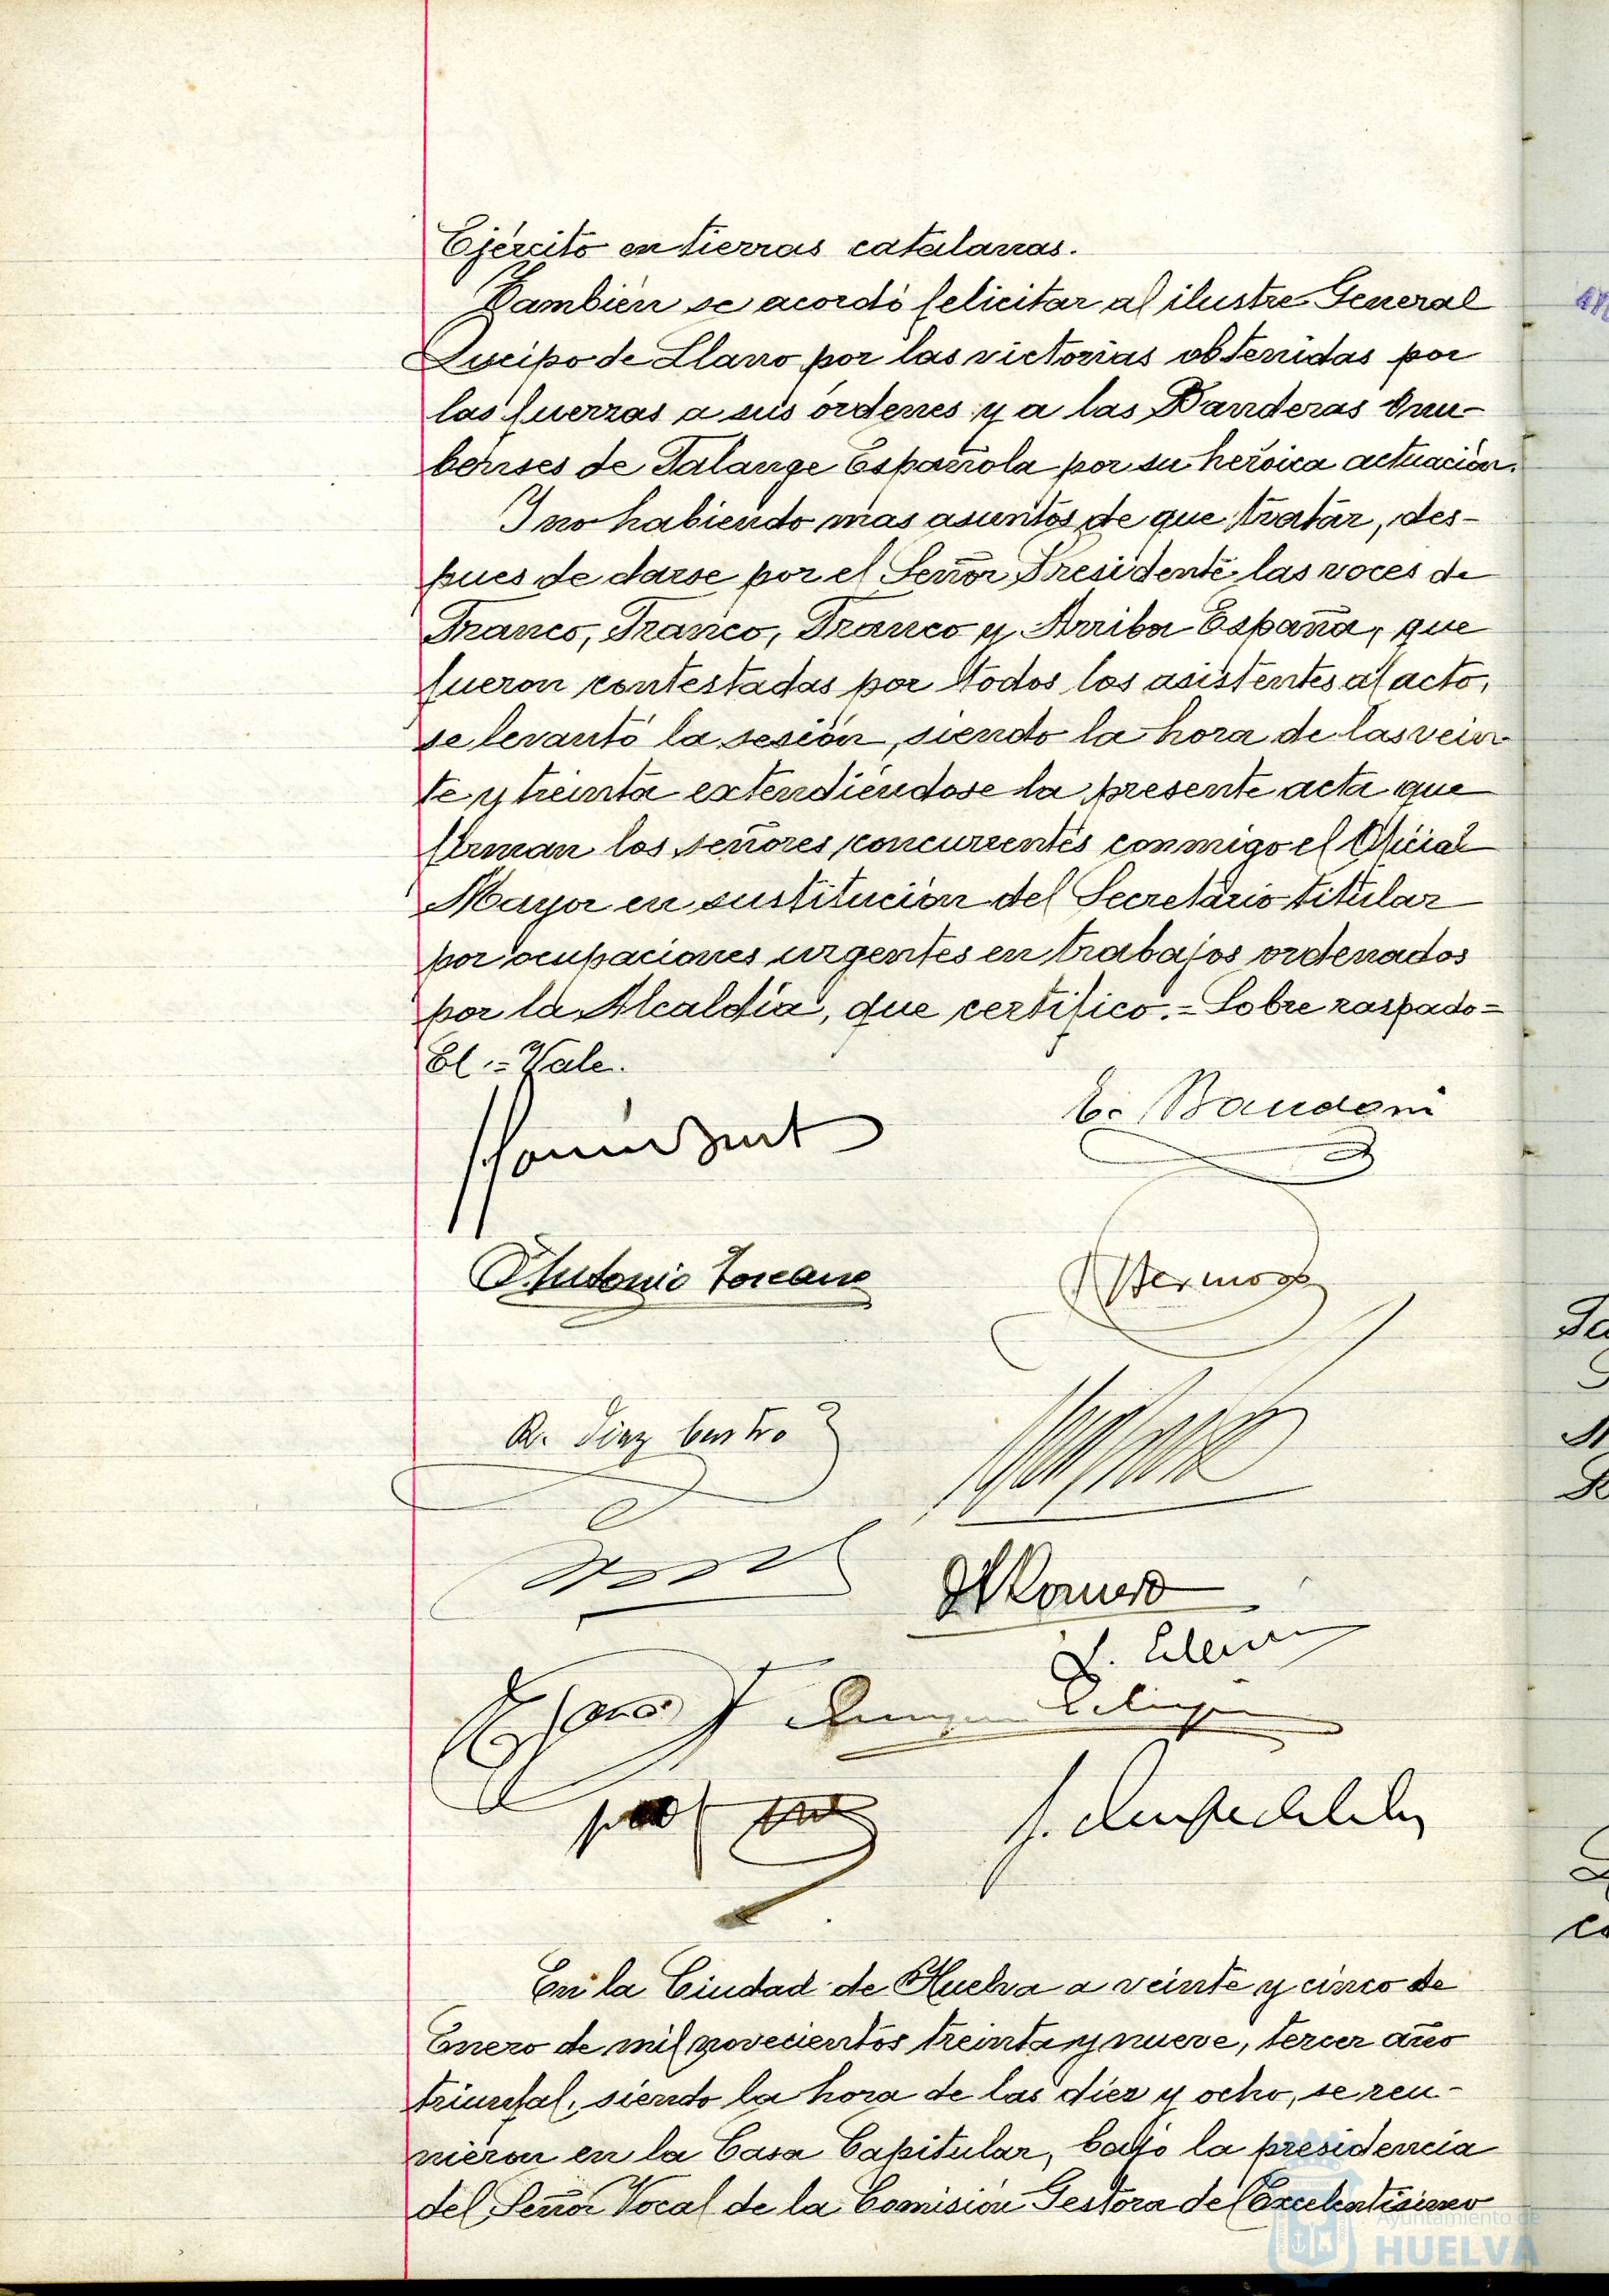 Ejército en tierras catalanas.
Tambien se acordó felicitar al ilustre General
Queipo de Llano por las victorias obtenidas por
las fuerzas a sus órdenes y a las Banderas Onu-
benses de Falange Española por su heróica actuación.
Y no habiendo mas asuntos de que tratar, des-
pues de darse por el Señor Presidente las voces de
Franco, Franco, Franco y Arriba España, que
fueron contestadas por todos los asistentes al acto,
se levantó la sesión, siendo la hora de las vein-
te y treinta extendiéndose la presente acta que
firman los señores concurrentes conmigo el Oficial
Mayor en sustitución del Secretario titular
por ocupaciones urgentes en trabajos ordenados
por la Alcaldia, que certifico.- Sobre raspado=
El.= Vale.
Antonio Toscano
R. Diaz Castro
Romero
En la Ciudad de Huelva a veinte y cinco de
Enero de mil novecientos treinta y nueve, tercer año
triunfal, siendo la hora de las diez y ocho, se reu-
nieron en la Casa Capitular, bajo la presidencia
del Señor Vocal de la Comisión Gestora del Excelentísimo
Ayuntamiento de
HUELVA